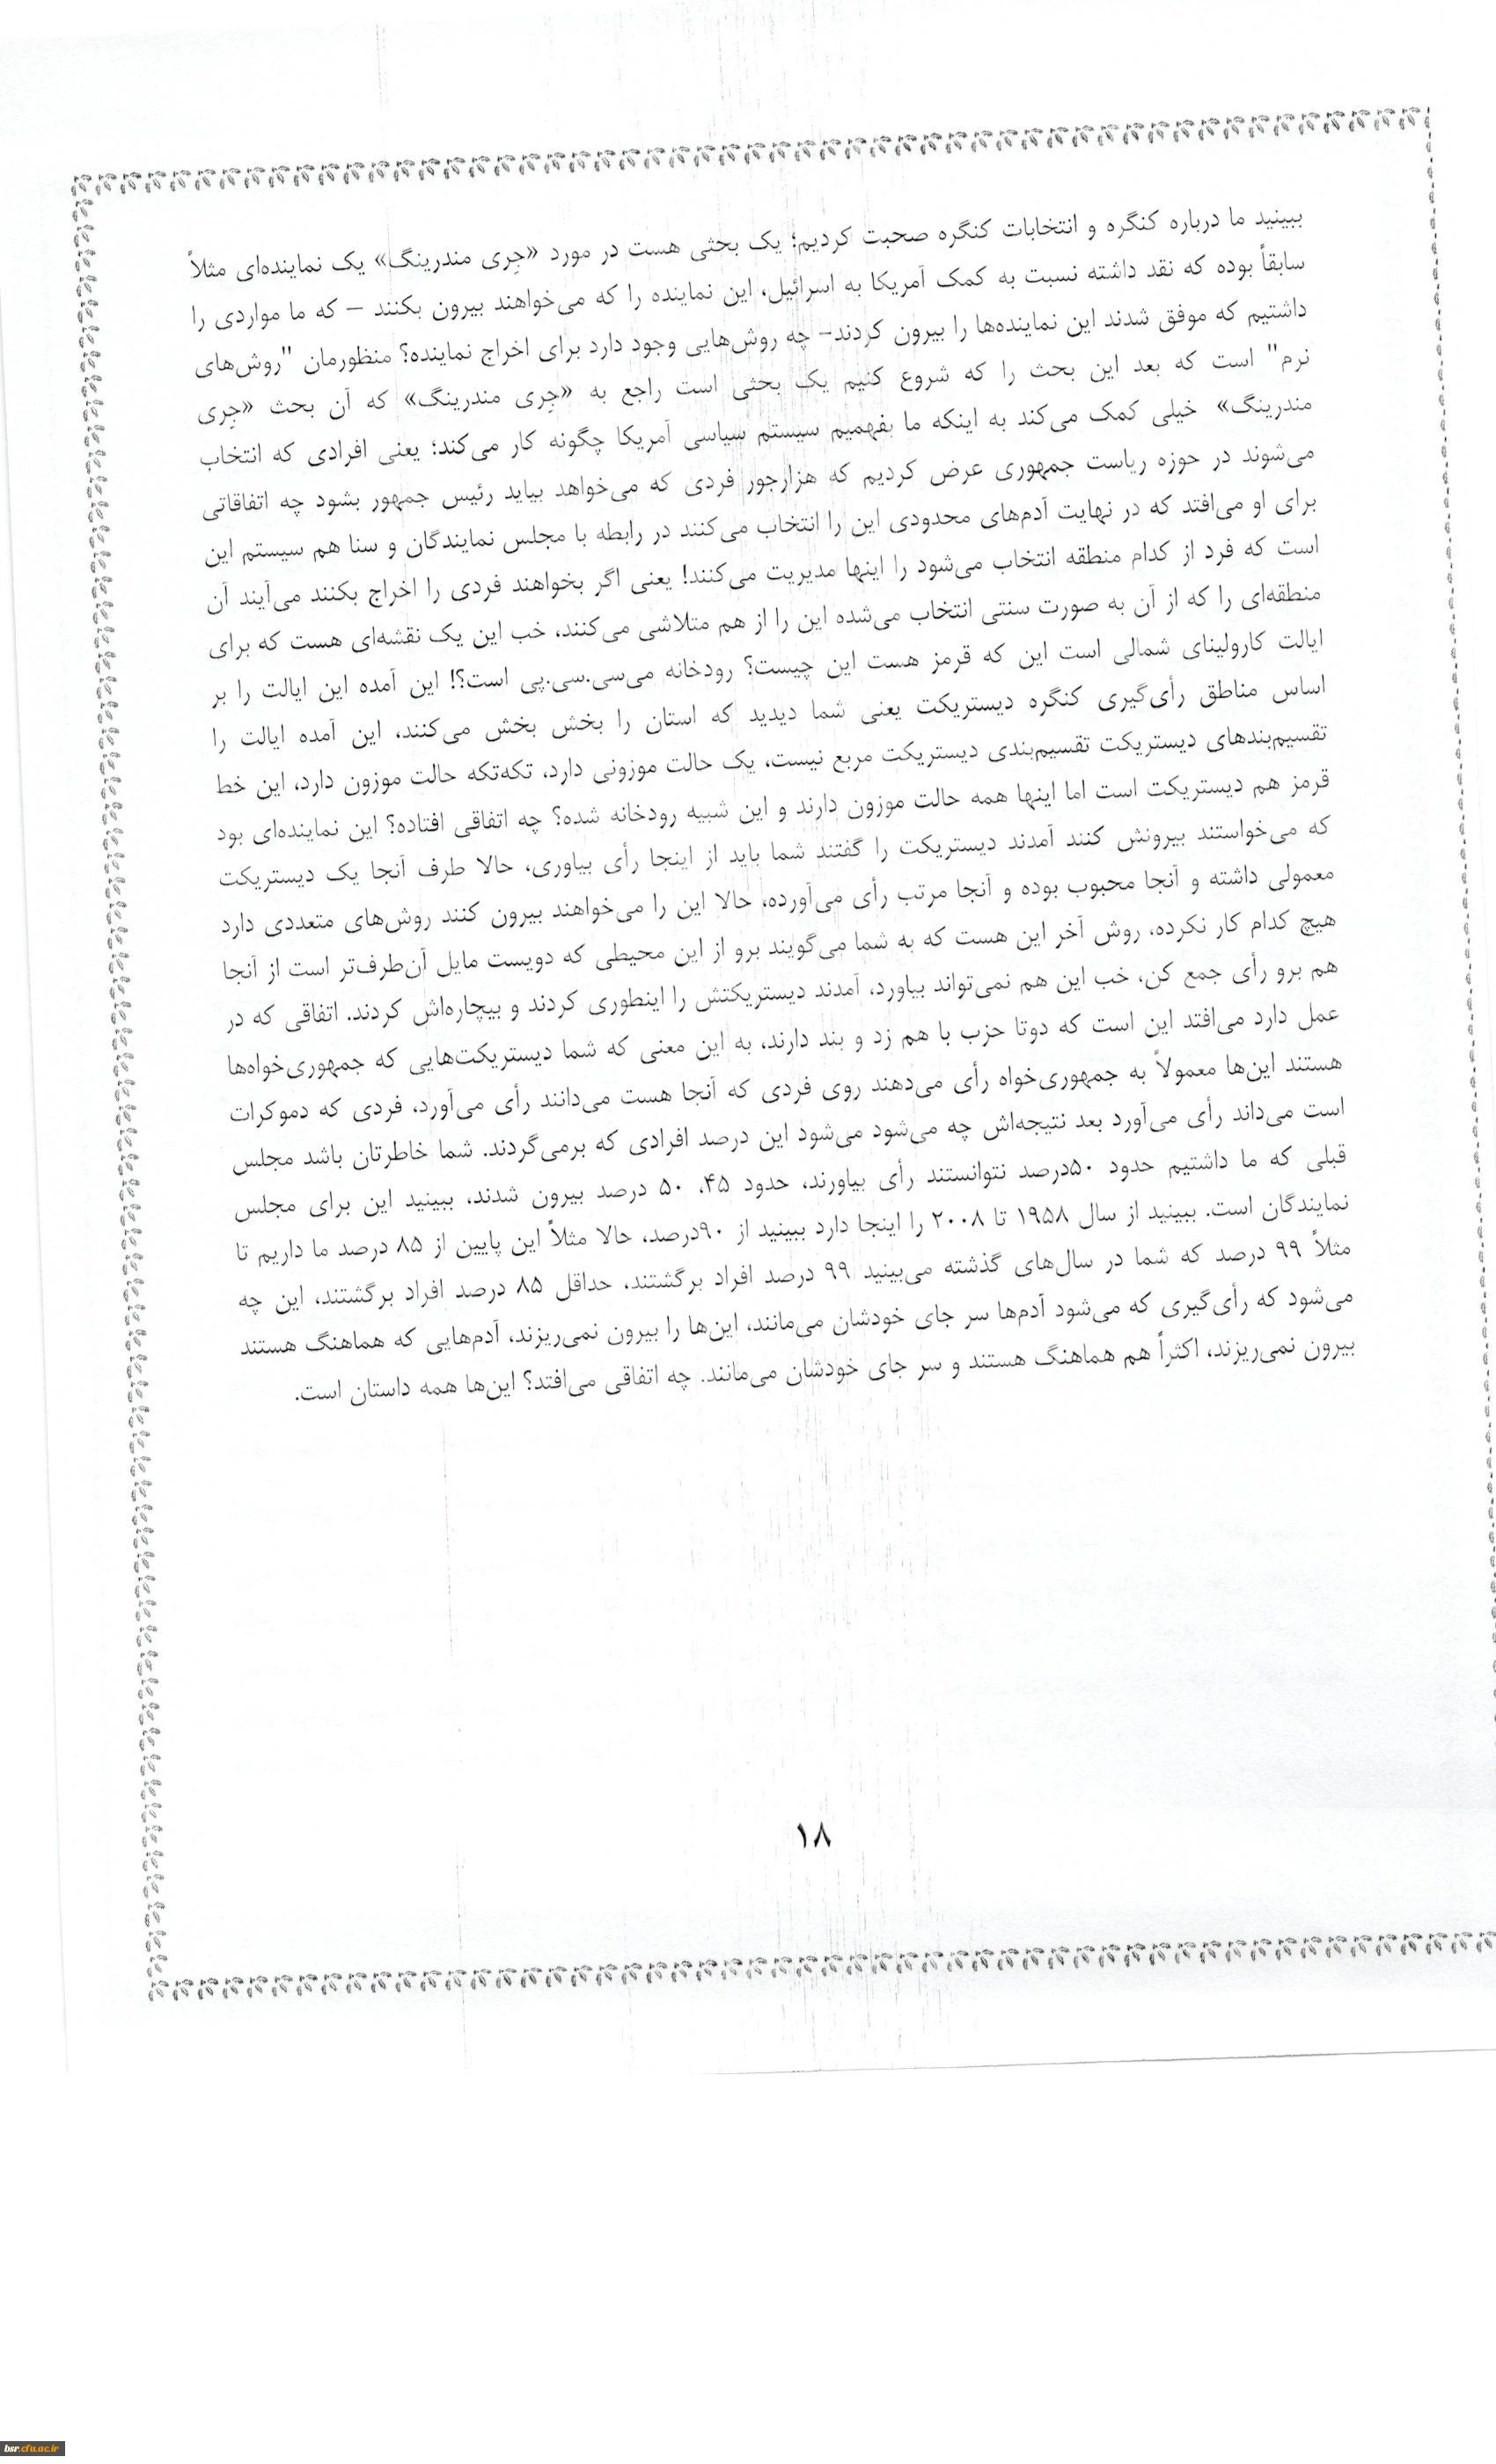 ببینید ما درباره کنگره و انتخابات کنگره صحبت کردیم؛ یک بحثی هست در مورد «جِری مندرینگ» یک نماینده‌ای مثلاً
سابقاً بوده که نقد داشته نسبت به کمک آمریکا به اسرائیل، این نماینده را که می‌خواهند بیرون بکنند – که ما مواردی را
داشتیم که موفق شدند این نماینده‌ها را بیرون کردند– چه روش‌هایی وجود دارد برای اخراج نماینده؟ منظورمان "روش‌های
نرم" است که بعد این بحث را که شروع کنیم یک بحثی است راجع به «جِری مندرینگ» که آن بحث «جِری
مندرینگ» خیلی کمک می‌کند به اینکه ما بفهمیم سیستم سیاسی آمریکا چگونه کار می‌کند؛ یعنی افرادی که انتخاب
می‌شوند در حوزه ریاست جمهوری عرض کردیم که هزارجور فردی که می‌خواهد بیاید رئیس جمهور بشود چه اتفاقاتی
برای او می‌افتد که در نهایت آدم‌های محدودی این را انتخاب می‌کنند در رابطه با مجلس نمایندگان و سنا هم سیستم این
است که فرد از کدام منطقه انتخاب می‌شود را اینها مدیریت می‌کنند! یعنی اگر بخواهند فردی را اخراج بکنند می‌آیند آن
منطقه‌ای را که از آن به صورت سنتی انتخاب می‌شده این را از هم متلاشی می‌کنند، خب این یک نقشه‌ای هست که برای
ایالت کارولینای شمالی است این که قرمز هست این چیست؟ رودخانه می‌سی.سی.پی است؟! این آمده این ایالت را بر
اساس مناطق رأی‌گیری کنگره دیستریکت یعنی شما دیدید که استان را بخش بخش می‌کنند، این آمده ایالت را
تقسیم‌بندهای دیستریکت تقسیم‌بندی دیستریکت مربع نیست، یک حالت موزونی دارد، تکه‌تکه حالت موزون دارد، این خط
قرمز هم دیستریکت است اما اینها همه حالت موزون دارند و این شبیه رودخانه شده؟ چه اتفاقی افتاده؟ این نماینده‌ای بود
که می‌خواستند بیرونش کنند آمدند دیستریکت را گفتند شما باید از اینجا رأی بیاوری، حالا طرف آنجا یک دیستریکت
معمولی داشته و آنجا محبوب بوده و آنجا مرتب رأی می‌آورده، حالا این را می‌خواهند بیرون کنند روش‌های متعددی دارد
هیچ کدام کار نکرده، روش آخر این هست که به شما می‌گویند برو از این محیطی که دویست مایل آن‌طرف‌تر است از آنجا
هم برو رأی جمع کن، خب این هم نمی‌تواند بیاورد، آمدند دیستریکتش را اینطوری کردند و بیچاره‌اش کردند. اتفاقی که در
عمل دارد می‌افتد این است که دوتا حزب با هم زد و بند دارند، به این معنی که شما دیستریکت‌هایی که جمهوری‌خواه‌ها
هستند این‌ها معمولاً به جمهوری‌خواه رأی می‌دهند روی فردی که آنجا هست می‌دانند رأی می‌آورد، فردی که دموکرات
است می‌داند رأی می‌آورد بعد نتیجه‌اش چه می‌شود می‌شود این درصد افرادی که برمی‌گردند. شما خاطرتان باشد مجلس
قبلی که ما داشتیم حدود ۵۰درصد نتوانستند رأی بیاورند، حدود ۴۵، ۵۰ درصد بیرون شدند، ببینید این برای مجلس
نمایندگان است. ببینید از سال ۱۹۵۸ تا ۲۰۰۸ را اینجا دارد ببینید از ۹۰درصد، حالا مثلاً این پایین از ۸۵ درصد ما داریم تا
مثلاً ۹۹ درصد که شما در سال‌های گذشته می‌بینید ۹۹ درصد افراد برگشتند، حداقل ۸۵ درصد افراد برگشتند، این چه
می‌شود که رأی‌گیری که می‌شود آدم‌ها سر جای خودشان می‌مانند، این‌ها را بیرون نمی‌ریزند، آدم‌هایی که هماهنگ هستند
بیرون نمی‌ریزند، اکثراً هم هماهنگ هستند و سر جای خودشان می‌مانند. چه اتفاقی می‌افتد؟ این‌ها همه داستان است.
۱۸
bsr.cfu.ac.ir